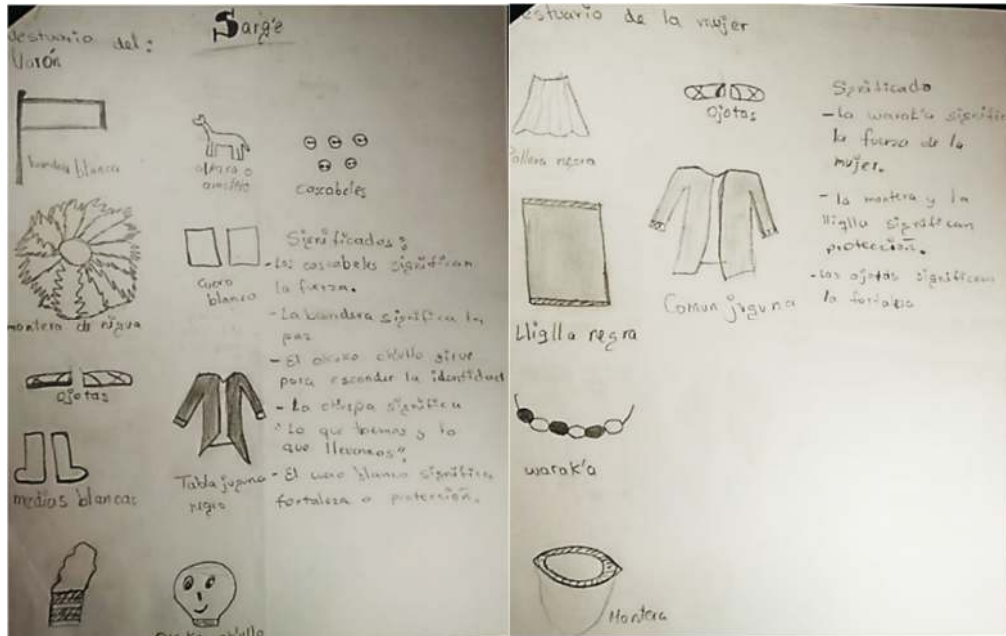 Sarge
vestuario del:
Varón
bandera blanca
alpaca o
cascabeles
montera de
cuero
blanco
Significados:
- Los cascabeles significan
la fuerza.
- La bandera significa la
paz
- El chullo sirve
para esconder la identidad
- La significa
"Lo que y lo
que llevamos".
- El cuero blanco significa
fortaleza o protección.
ojotas
medias blancas
Tabla juguna
negro
vestuario de la mujer
Pollera negra
ojotas
Significado
- La warak'a signific
la fuerza de la
mujer.
- la montera y la
lliglla significan
protección.
- Las ojotas significan
la
Lliglla negra
Comun juguna
warak'a
Montera